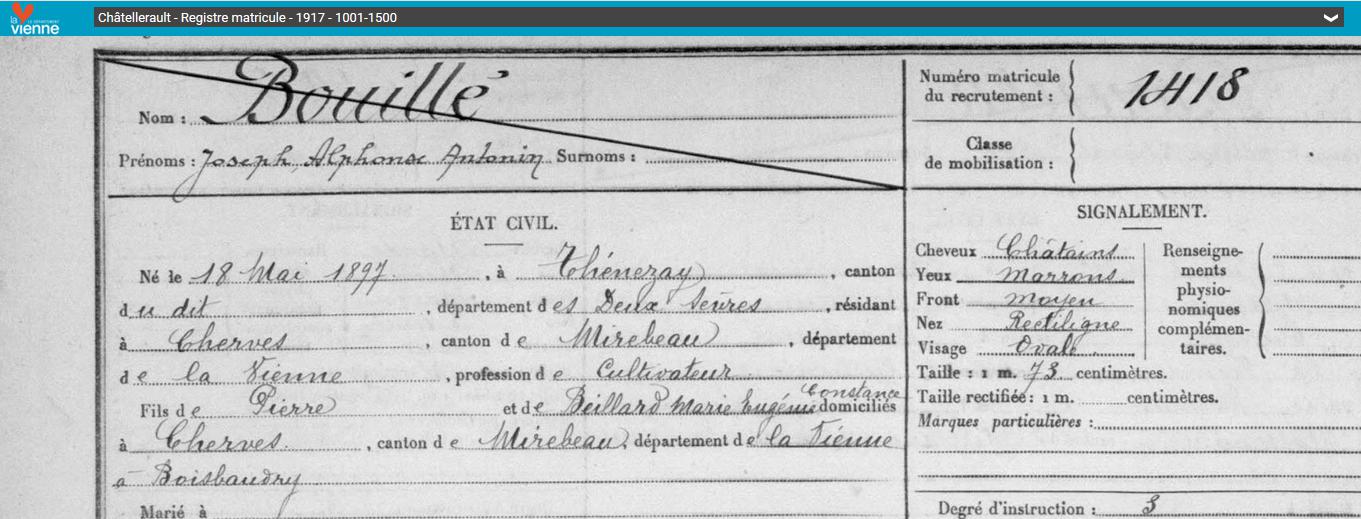 la vienne LE DÉPARTEMENT
Châtellerault - Registre matricule - 1917 - 1001-1500
Nom : Bouillé
Prénoms : Joseph, Alphonse Antonin Surnoms :
Numéro matricule du recrutement : 1418
Classe de mobilisation :
ÉTAT CIVIL.
Né le 18 Mai 1897, à Thénezay, canton
du dit, département des Deux Sèvres, résidant
à Cherves, canton de Mirebeau, département
de la Vienne, profession de Cultivateur
Constance
Fils de Pierre et de Beillard Marie Eugénie domiciliés
à Cherves, canton de Mirebeau, département de la Vienne
à Boisbaudry
Marié à
SIGNALEMENT.
Cheveux Châtains
Yeux Marrons
Front Moyen
Nez Rectiligne
Visage Ovale
Renseigne-
ments
physio-
nomiques
complémen-
taires.
Taille : 1 m. 73 centimètres.
Taille rectifiée : 1 m. centimètres.
Marques particulières :
Degré d'instruction : 3